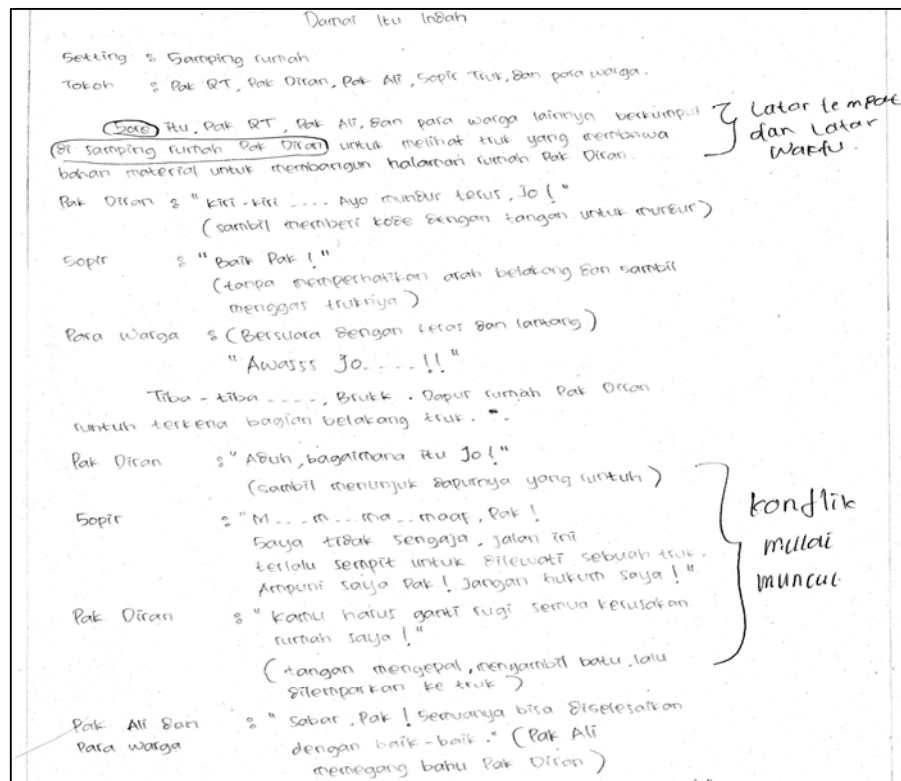 Damai Itu Indah
Setting : Samping rumah
Tokoh : Pak RT, Pak Diran, Pak Ali, Sopir Truk, dan para warga.
Sore itu, Pak RT, Pak Ali, dan para warga lainnya berkumpul
di samping rumah Pak Diran untuk melihat truk yang membawa
bahan material untuk membangun halaman rumah Pak Diran.
Latar tempat
dan Latar
Waktu.
Pak Diran : "Kiri-kiri .... Ayo mundur terus, Jo !"
(sambil memberi kode dengan tangan untuk mundur)
Sopir : "Baik Pak !"
(tanpa memperhatikan arah belakang dan sambil
menggas truknya)
Para Warga : (Bersuara dengan keras dan lantang)
"Awasss Jo.....!!"
Tiba-tiba ....., Brukk. Dapur rumah Pak Diran
runtuh terkena bagian belakang truk.
Pak Diran : "Aduh, bagaimana itu Jo !"
(sambil menunjuk dapurnya yang runtuh)
Sopir : "M...m...ma..maaf, Pak !
Saya tidak sengaja, jalan ini
terlalu sempit untuk dilewati sebuah truk.
Ampuni saya Pak ! Jangan hukum saya !"
Pak Diran : "Kamu harus ganti rugi semua kerusakan
rumah saya !"
(tangan mengepal, mengambil batu, lalu
dilemparkan ke truk)
konflik
mulai
muncul
Pak Ali dan : "Sabar, Pak ! Semuanya bisa diselesaikan
Para warga dengan baik-baik." (Pak Ali
memegang bahu Pak Diran)